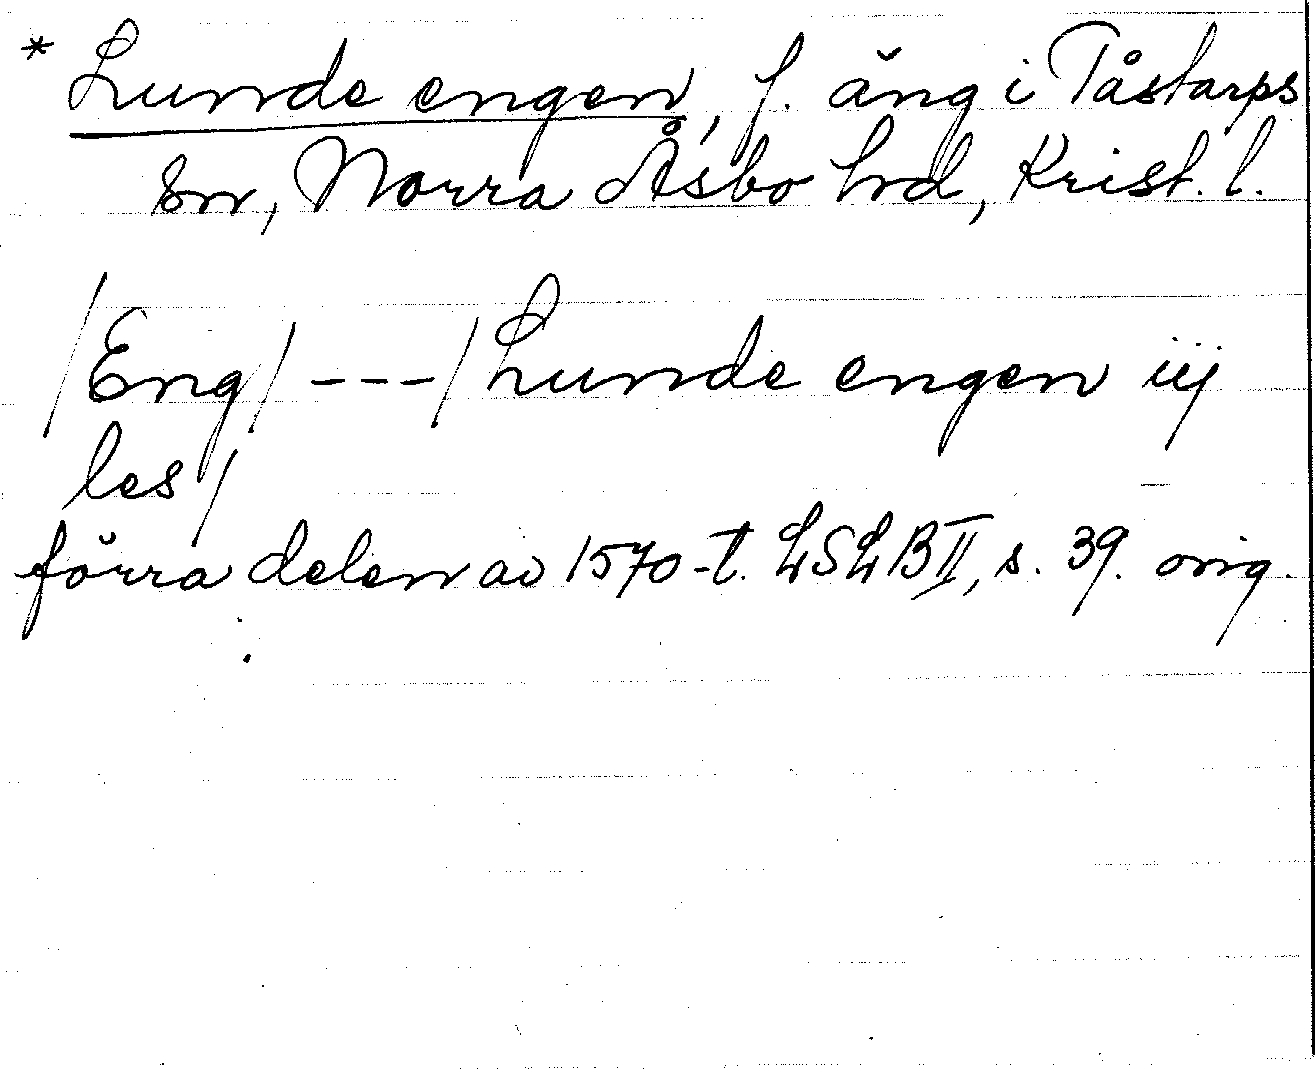 * Lunde engen, f. äng i Tåstarps
sn, Norra Åsbo hrd, Krist. l.
/Eng/ ---/ Lunde engen iij
les/
förra delen av 1570-t. LSLB II, s. 39. orig.